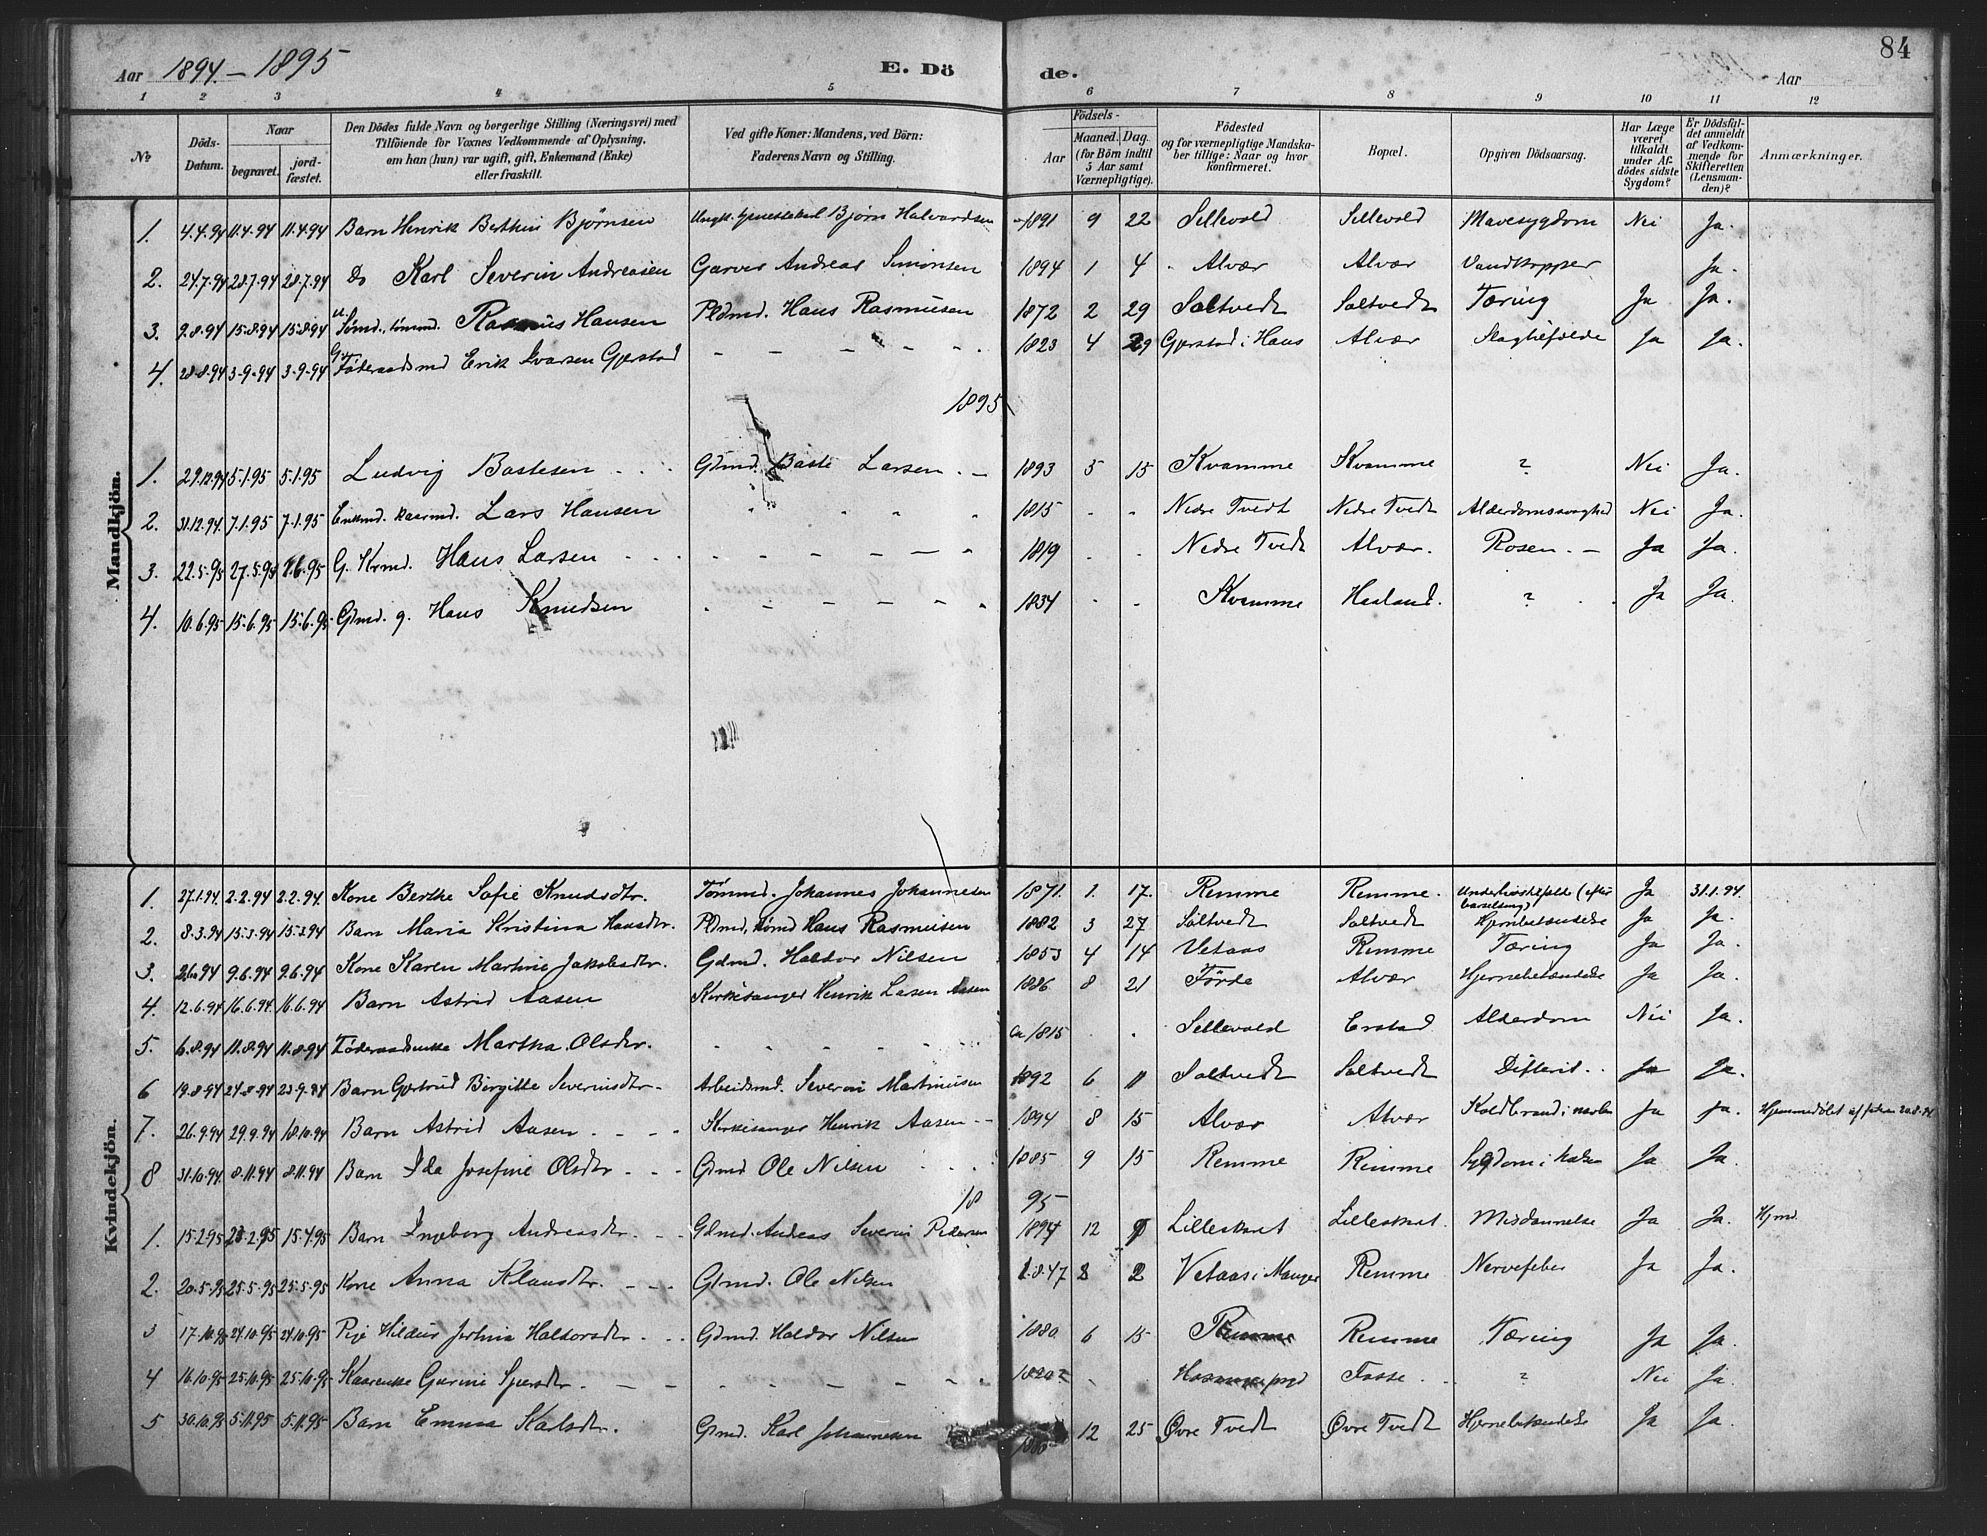 Aar 1894. – 1895
E. Dö
de.
Aar
84
1 2 3 4 5 6 7 8 9 10 11 12
№
Döds-Datum.
Naar
begravet.
jord-fæstet.
Den Dödes fulde Navn og borgerlige Stilling (Næringsvei) med
Tilföiende for Voxnes Vedkommende af Oplysning,
om han (hun) var ugift, gift, Enkemand (Enke)
eller fraskilt.
Ved gifte Koner: Mandens, ved Börn:
Faderens Navn og Stilling.
Födsels-
Aar
Maaned. Dag.
(for Börn indtil
5 Aar samt
Værnepligtige).
Födested
og for værnepligtige Mandska-
ber tillige: Naar og hvor
konfirmeret.
Bopæl.
Opgiven Dödsaarsag.
Har Læge
været
tilkaldt
under Af-
dödes sidste
Sygdom?
Er Dödsfal-
det anmeldt
af Vedkom-
mende for
Skifteretten
(Lensman-
den)?
Anmærkninger.
Mandkjön.
1. 4.4.94 11.4.94 11.4.94 Barn Henrik Berthin Bjørnsen Ungk. Bjørn Halvardsen 1891 9 22 Sellevold Sellevold Mavesygdom Nei Ja.
2. 24.7.94 28.7.94 28.7.94 Do Karl Severin Andreasen Garver Andreas Simonsen 1894 1 4 Alvær Alvær Vandkopper Ja.
3. 9.8.94 15.8.94 15.8.94 u. Sømd., tømmd. Rasmus Hansen Pldmd. Hans Rasmusen 1872 2 29 Saltvedt Saltvedt Tæring Ja Ja.
4. 28.8.94 3.9.94 3.9.94 G. Føderaadsmd Erik Ivarsen Gjerstad – – – – 1823 4 29 Gjerstad i Haus Alvær Slagtilfælde Ja Ja.
1895
1. 29.12.94 5.1.95 5.1.95 Ludvig Bastesen Gdmd. Baste Larsen 1893 5 15 Kvamme Kvamme ? Nei Ja.
2. 31.12.94. 7.1.95 7.1.95 Enkmd. kaarmd. Lars Hansen 1815 Nedre Tvedt Nedre Tvedt Alderdomssvaghed Nei Ja.
3. 22.5.95 27.5.95 8.6.95 G. Krmd. Hans Larsen – – – – 1819 Nedre Tvedt Alvær. Rosen. – Ja Ja.
4. 10.6.95 15.6.95 15.6.95 Gdmd. g. Hans Knudsen – – – – 1834 Kvamme Haaland. ? Ja Ja.
Kvindekjön.
1. 27.1.94 2.2.94 2.2.94. Kone Berthe Sofie Knudsdtr. Tømmd. Johannes Johannesen 1871. 1. 17. Remme Remme. (efter barselseng) Ja 31.1.94.
2. 8.3.94 15.3.94 15.3.94 Barn Maria Kristina Hansdtr. Pldmd, tømd Hans Rasmusen 1882 3 27 Saltvedt Saltvedt Hjernebetændelse Ja Ja.
3. 2.6.94 9.6.94 9.6.94 Kone Karen Martine Jakobsdtr. Gdmd. Haldor Nilsen 1853 4 14 Vetaas Remme Tæring Ja Ja.
4. 12.6.94 16.6.94. 16.6.94 Barn Astrid Aasen Kirkesanger Henrik Larsen Aasen 1886 8 21 Förde Alvær Hjernebetændelse Ja Ja.
5. 6.8.94 11.8.94 11.8.94 Føderaadsenke Martha Olsdtr. Ca 1815 Sellevold Erstad Alderdom Nei Ja.
6 19.8.94 24.8.94 23.9.94 Barn Gjertrud Birgitte Severinsdtr. Arbeidsmd. Severin Martinusen 1892 6 Saltvedt Saltvedt Difterit. Ja Ja.
7. 26.9.94 29.9.94 18.10.94 Barn Astrid Aasen Kirkesanger Henrik Aasen 1894 8 15 Alvær Alvær Koldbrand i navlen Ja Ja. Hjemmedöbt af
8 31.10.94. 8.11.94 8.11.94 Barn Ida Josefine Olsdtr Gdmd Ole Nilsen 1885 9 15 Remme Remme Sygdom i halsen Ja Ja.
18 95
1. 15.2.95 23.2.95 15.4.95 Barn Ingeborg Andreasdtr. Gdmd. Andreas Severin Pedersen 1894 12 Lilleskaret Lilleskaret. Misdannelse Ja Ja. Hjmd.
2. 20.5.95 25.5.95 25.5.95 Kone Anna Klausdtr. Gdmd. Ole Nilsen 1847 8 2 Vetaas i Manger Remme Nervefeber Ja Ja.
3 17.10.95 24.10.95 24.10.95 Pige Haldorsdtr. Gdmd. Haldor Nilsen 1880 6 15 Remme Remme Tæring Ja Ja.
4 16.10.95 25.10.95 25.10.95 Kaarenke Gurine Sjursdtr. – – – – 1820? Fosse ? Nei Ja.
5 30.10.95 5.11.95 5.11.95 Barn Emma Karlsdtr. Gdmd. Karl Johannesen 12 25 Øvre Tvedt Øvre Tvedt Hjernebetændelse Ja Ja.